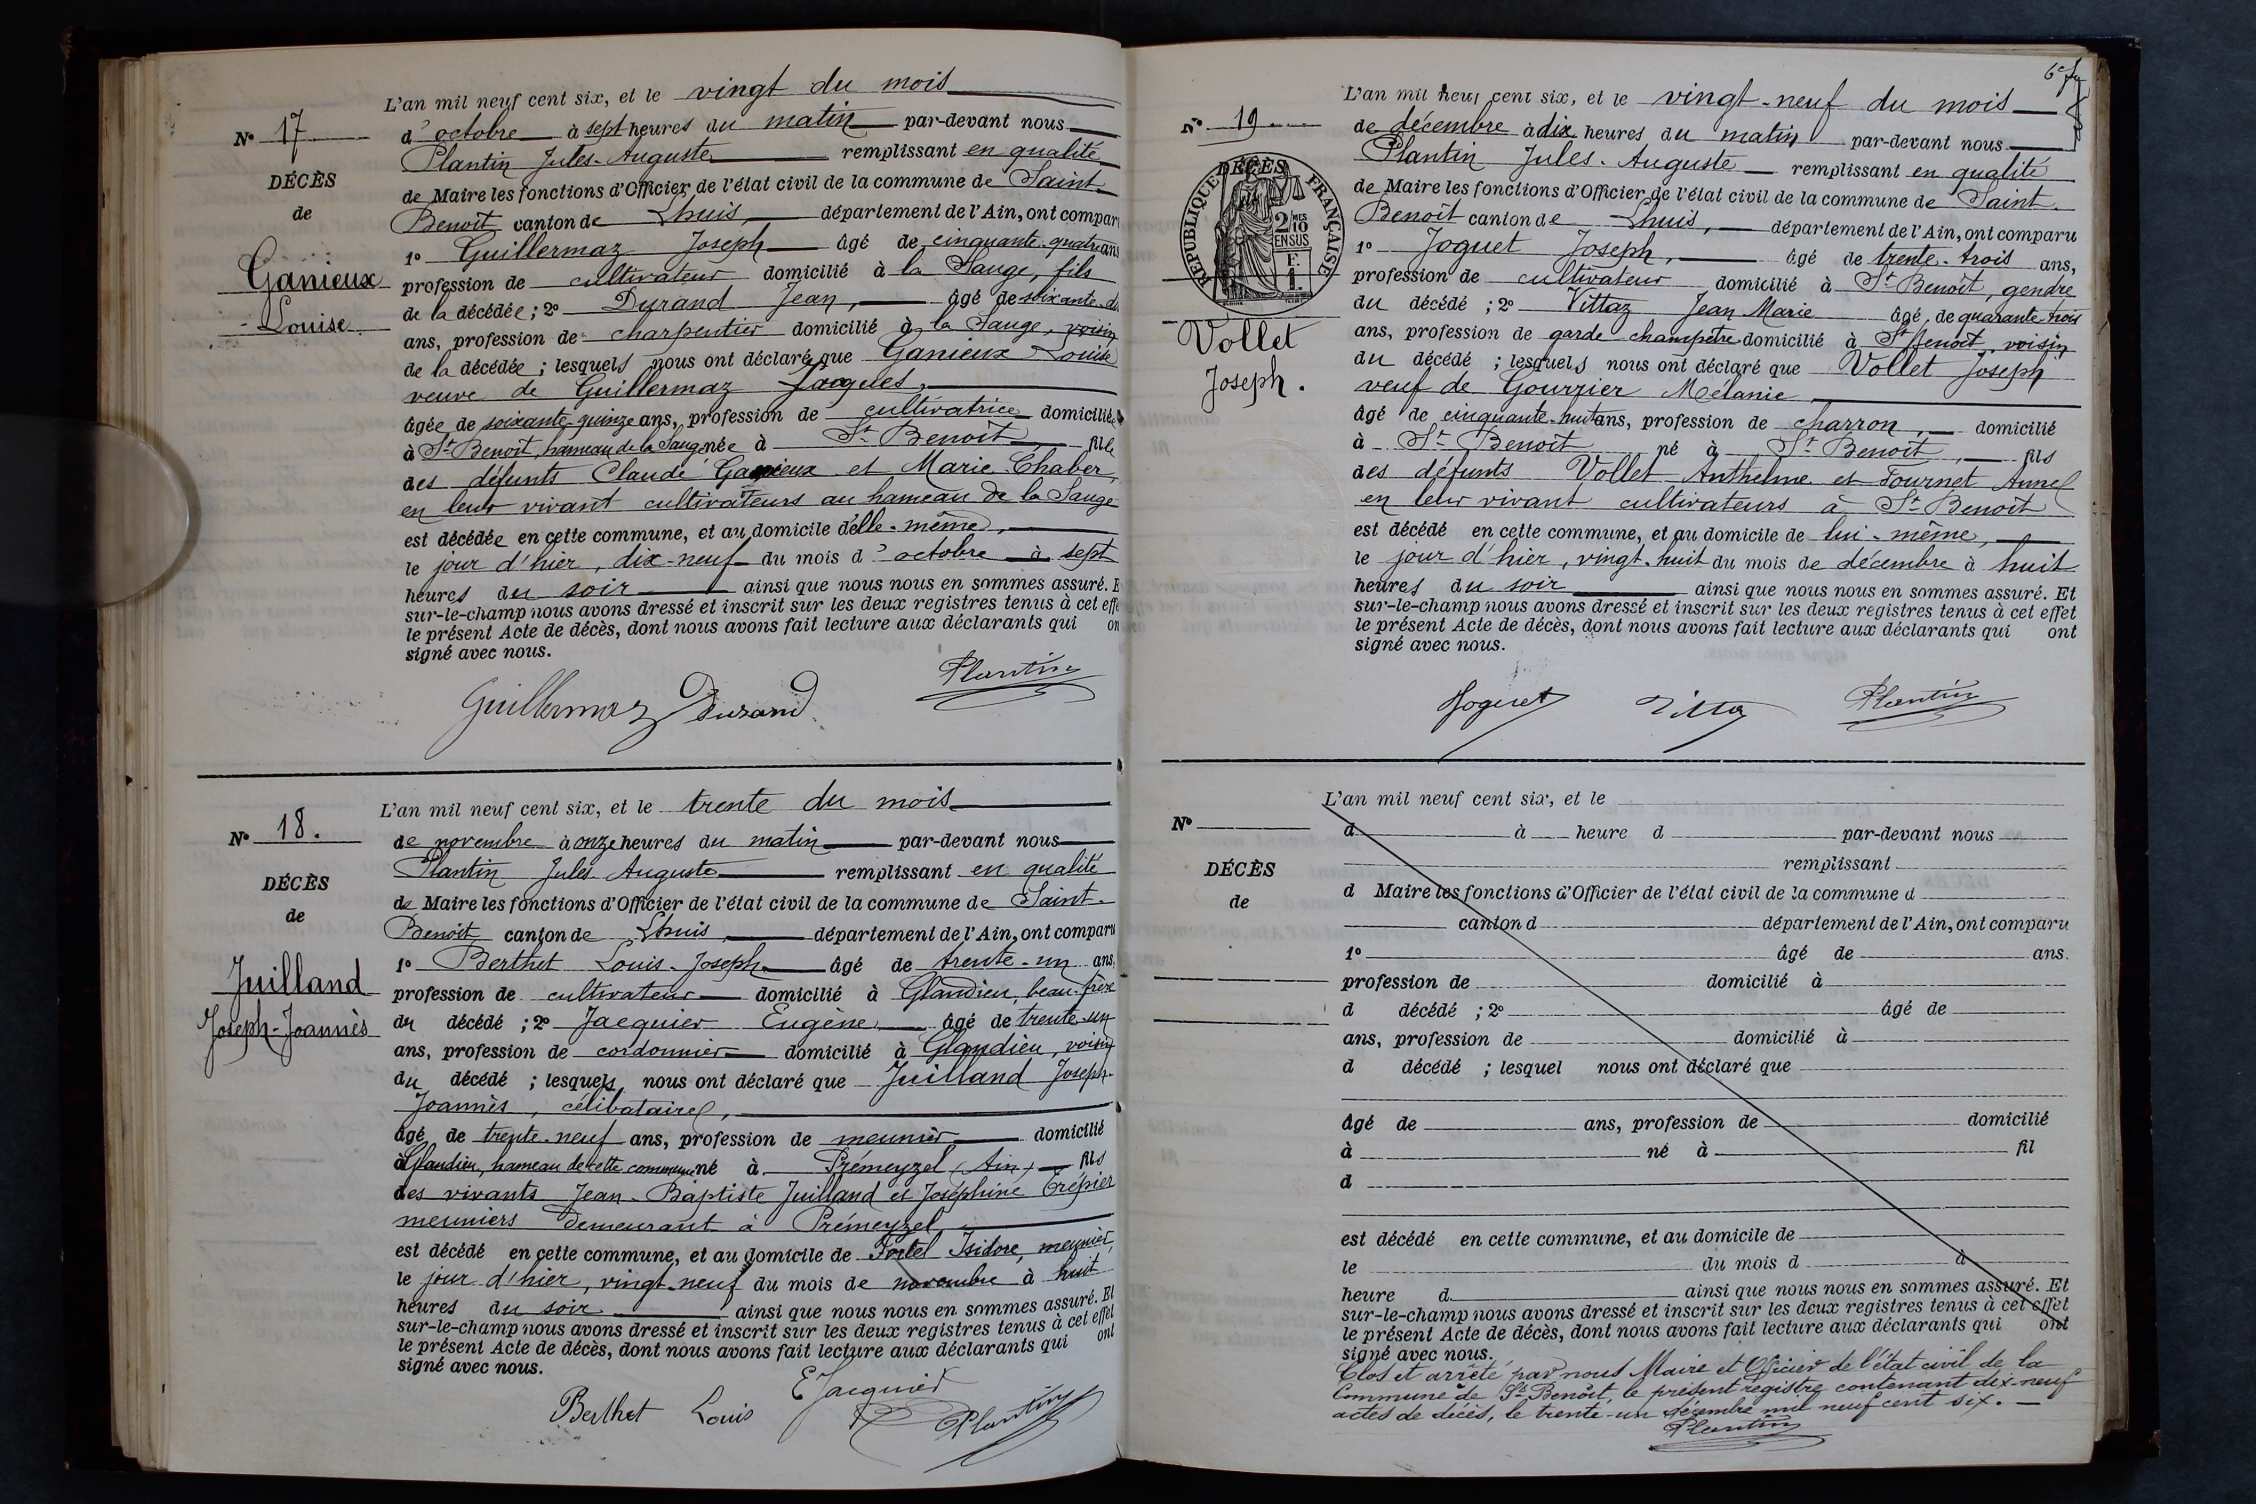 L'an mil neuf cent six, et le vingt du mois
N° 17
d'octobre à sept heures du matin par-devant nous
Plantin Jules-Auguste remplissant en qualité
DÉCÈS
de Maire les fonctions d'Officier de l'état civil de la commune de Saint
de
Benoît canton de Lhuis, département de l'Ain, ont comparu
1° Guillermaz Joseph âgé de cinquante-quatre ans
Ganieux
profession de cultivateur domicilié à la Sauge, fils
Louise
de la décédée ; 2° Durand Jean, âgé de soixante-
ans, profession de charpentier domicilié à la Sauge, voisin
de la décédée ; lesquels nous ont déclaré que Ganieux Louise
veuve de Guillermaz Jacques,
âgée de soixante-quinze ans, profession de cultivatrice domiciliée
à St Benoît, hameau de la Sauge née à St Benoît fille
des défunts Claude Ganieux et Marie Chaber,
en leur vivant cultivateurs au hameau de la Sauge
est décédée en cette commune, et au domicile d'elle-même,
le jour d'hier, dix-neuf du mois d'octobre à sept
heures du soir ainsi que nous nous en sommes assuré. E
sur-le-champ nous avons dressé et inscrit sur les deux registres tenus à cet effe
le présent Acte de décès, dont nous avons fait lecture aux déclarants qui on
signé avec nous.
Guillermaz Durand Plantin
L'an mil neuf cent six, et le trente du mois
N° 18.
de novembre à onze heures du matin par-devant nous
Plantin Jules-Auguste remplissant en qualité
DÉCÈS
de Maire les fonctions d'Officier de l'état civil de la commune de Saint-
de
Benoît canton de Lhuis, département de l'Ain, ont comparu
1° Berthet Louis-Joseph âgé de trente-un ans,
Juilland
profession de cultivateur domicilié à Glandieu, beau-frère
Joseph-Joannès
du décédé ; 2° Jacquier Eugène, âgé de trente-un
ans, profession de cordonnier domicilié à Glandieu, voisin
du décédé ; lesquels nous ont déclaré que Juilland Joseph-
Joannès, célibataire,
âgé de trente-neuf ans, profession de meunier domicilié
à Glandieu, hameau de cette commune né à Prémeyzel (Ain) fils
des vivants Jean-Baptiste Juilland et Joséphine Trépier
meuniers demeurant à Prémeyzel,
est décédé en cette commune, et au domicile de Isidore, meunier,
le jour d'hier, vingt-neuf du mois de novembre à huit
heures du soir ainsi que nous nous en sommes assuré. Et
sur-le-champ nous avons dressé et inscrit sur les deux registres tenus à cet effet
le présent Acte de décès, dont nous avons fait lecture aux déclarants qui ont
signé avec nous.
Berthet Louis E Jacquier Plantin
L'an mil neuf cent six, et le vingt-neuf du mois
N° 19
de décembre à dix heures du matin par-devant nous
Plantin Jules-Auguste remplissant en qualité
DÉCÈS
RÉPUBLIQUE FRANÇAISE
2/10MES
EN SUS
F.
1.
de Maire les fonctions d'Officier de l'état civil de la commune de Saint-
Benoît canton de Lhuis, département de l'Ain, ont comparu
1° Joguet Joseph, âgé de trente-trois ans,
profession de cultivateur domicilié à St Benoît, gendre
du décédé ; 2° Vittaz Jean Marie âgé de quarante-trois
Vollet
Joseph.
ans, profession de garde champêtre domicilié à St Benoît, voisin
du décédé ; lesquels nous ont déclaré que Vollet Joseph
veuf de Gourrier Mélanie
âgé de cinquante-huit ans, profession de charron, domicilié
à St Benoît né à St Benoît, fils
des défunts Vollet Anthelme et Fournet Anne
en leur vivant cultivateurs à St Benoît
est décédé en cette commune, et au domicile de lui-même,
le jour d'hier, vingt-huit du mois de décembre à huit
heures du soir ainsi que nous nous en sommes assuré. Et
sur-le-champ nous avons dressé et inscrit sur les deux registres tenus à cet effet
le présent Acte de décès, dont nous avons fait lecture aux déclarants qui ont
signé avec nous.
Joguet Plantin
L'an mil neuf cent six, et le
N°
d à heure d par-devant nous
remplissant
DÉCÈS
d Maire les fonctions d'Officier de l'état civil de la commune d
de
canton d département de l'Ain, ont comparu
1° âgé de ans.
profession de domicilié à
d décédé ; 2° âgé de
ans, profession de domicilié à
d décédé ; lesquel nous ont déclaré que
âgé de ans, profession de domicilié
à né à fil
d
est décédé en cette commune, et au domicile de
le du mois d à
heure d ainsi que nous nous en sommes assuré. Et
sur-le-champ nous avons dressé et inscrit sur les deux registres tenus à cet effet
le présent Acte de décès, dont nous avons fait lecture aux déclarants qui ont
signé avec nous.
Clos et arrêté par nous Maire et Officier de l'état civil de la
Commune de St Benoît, le présent registre contenant dix-neuf
actes de décès, le trente-un décembre mil neuf cent six.
Plantin